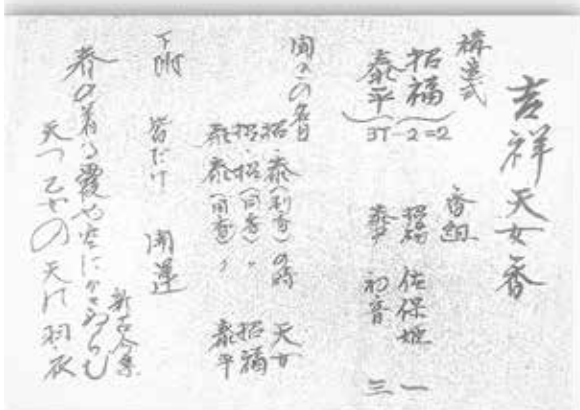 吉祥天女香
構造式
招福
泰平
3T-2=2
香組
招福 佐保姫 一
泰平 初音 三
聞の名目
招・泰(別香)の時 天女
招・招(同香)〃 招福
泰・泰(同香)〃 泰平
下附 皆だけ 開運
新古今集
春の着る霞や空に
天つ乙女の天の羽衣